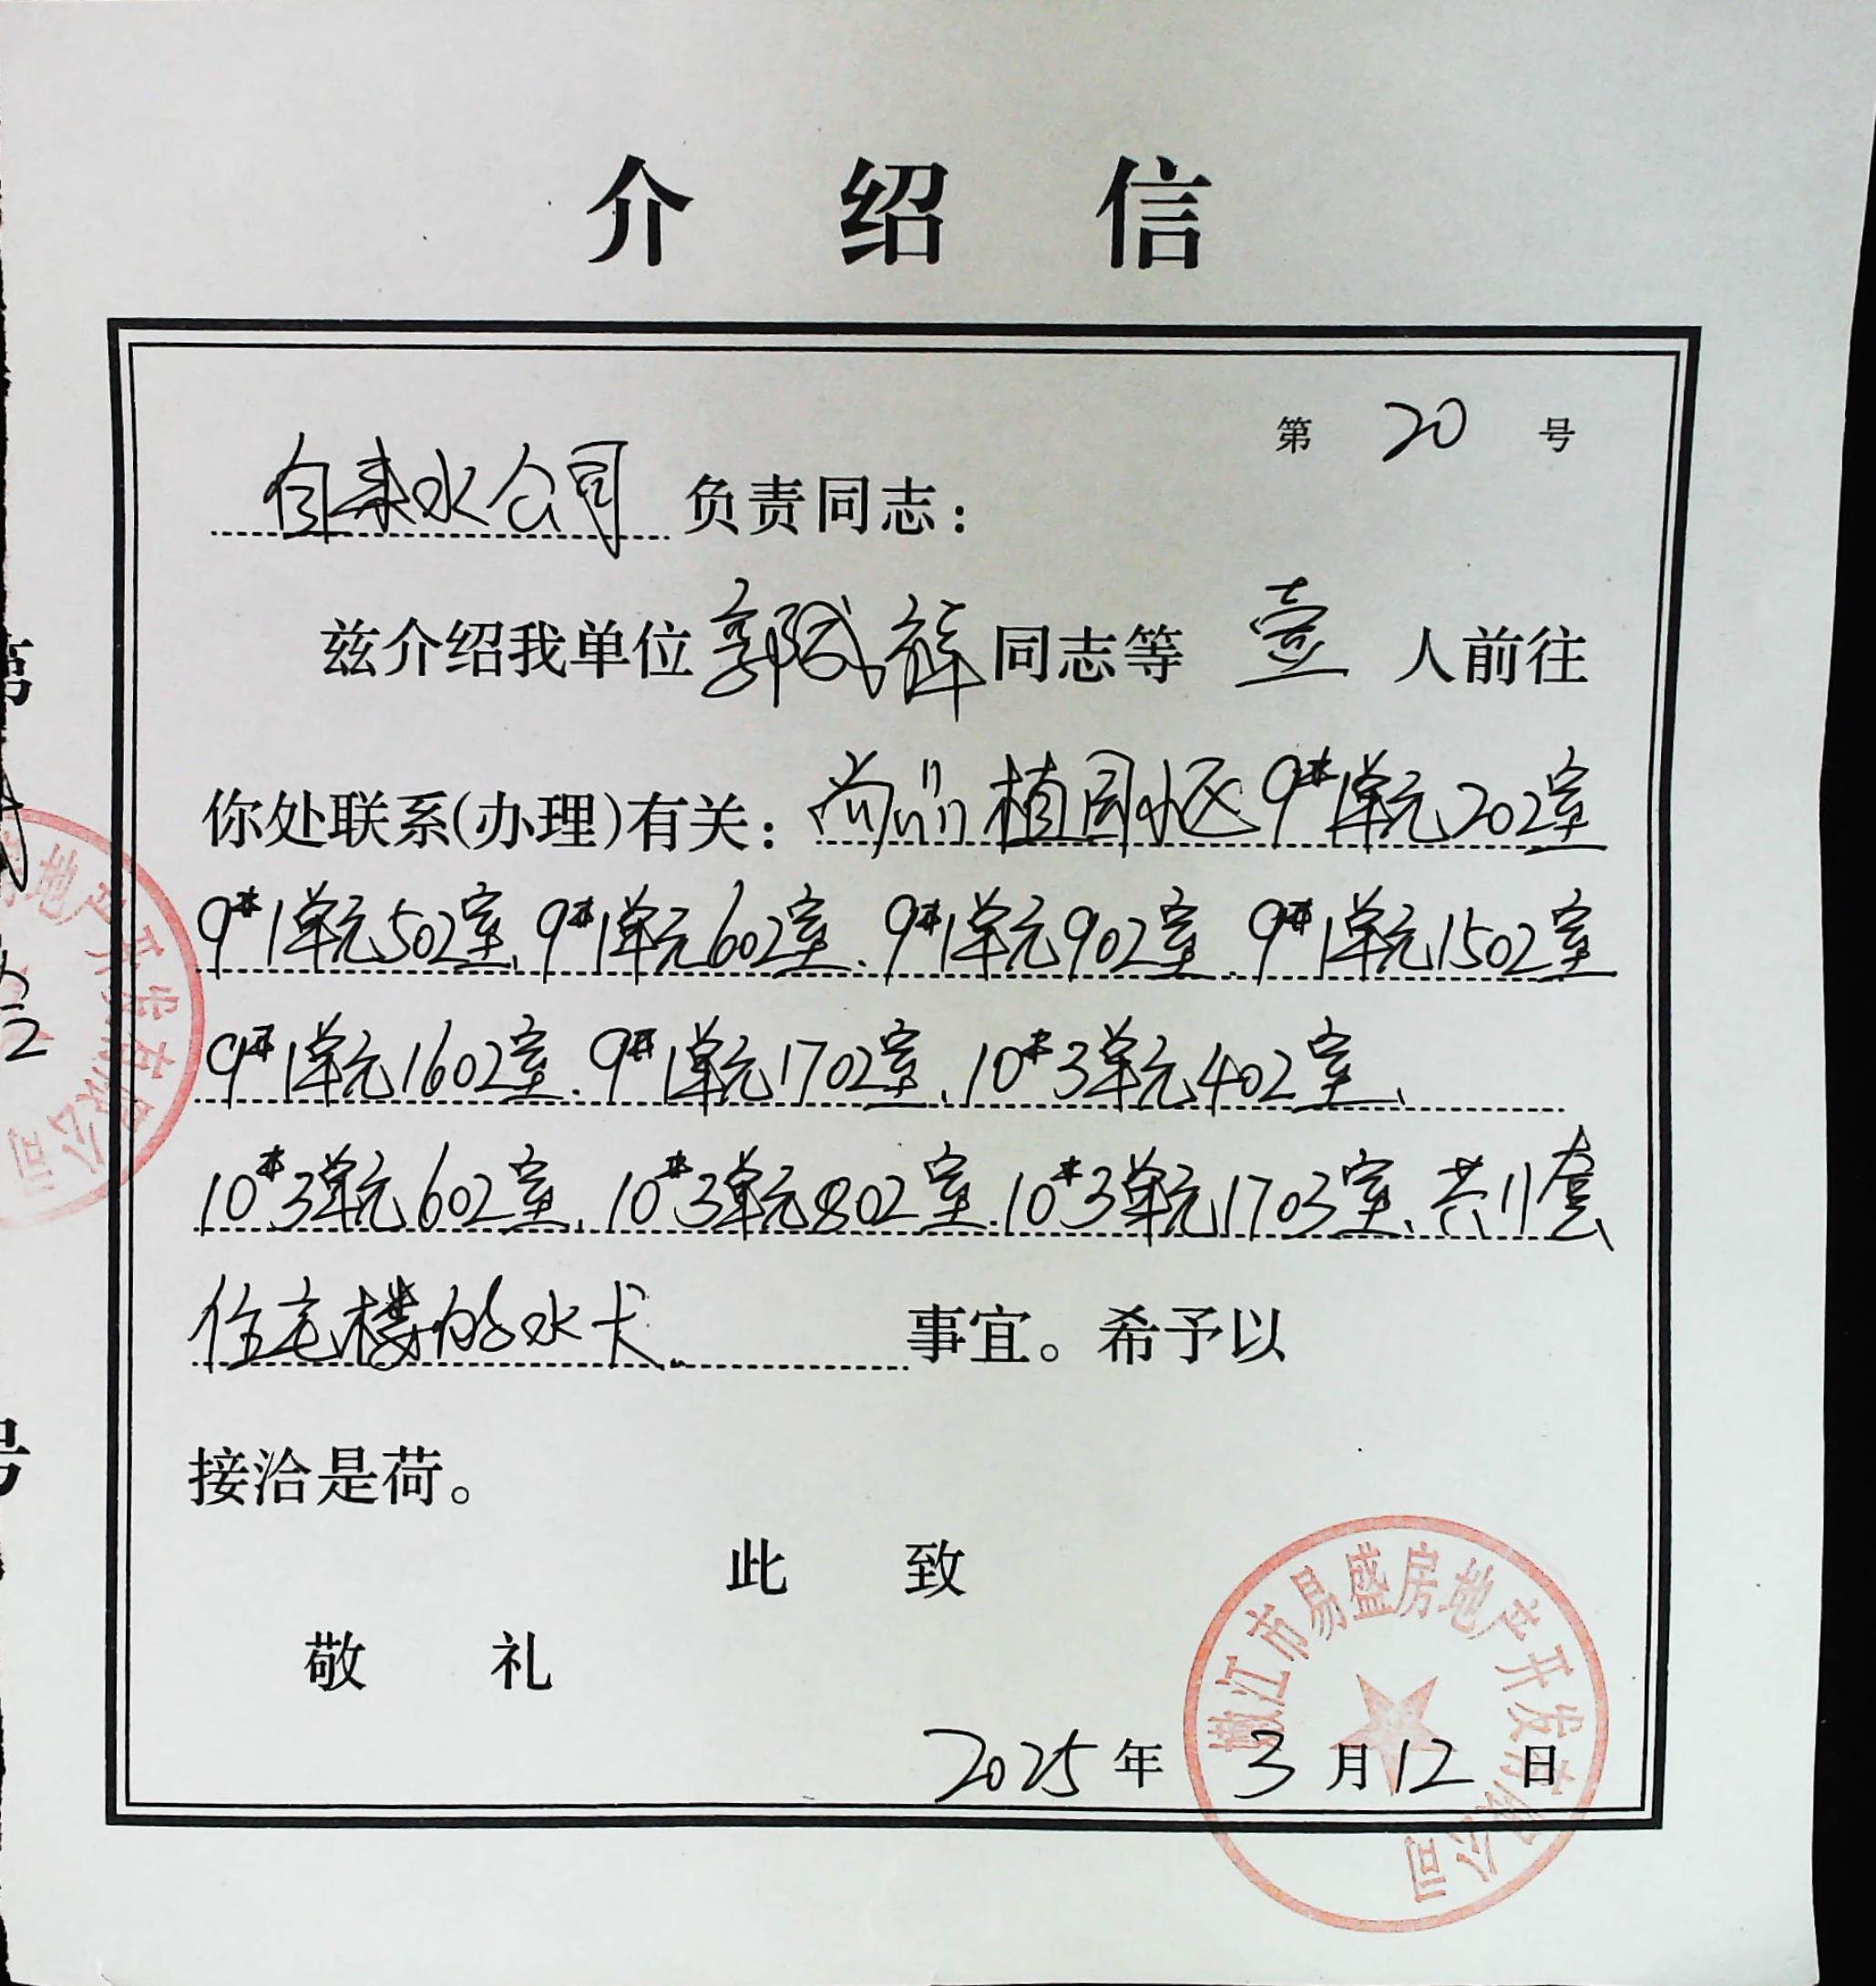 介绍信
第 20 号
自来水公司 负责同志：
兹介绍我单位 郭武辉 同志等 壹 人前往
你处联系(办理)有关：尚品植园小区9#1单元202室
9#1单元502室、9#1单元602室、9#1单元902室、9#1单元1502室
9#1单元1602室、9#1单元1702室、10#3单元402室、
10#3单元602室、10#3单元802室、10#3单元1703室、共11套
住宅楼的水卡 事宜。希予以
接洽是荷。
此 致
敬 礼
2025 年 3 月 12 日
嫩江市易盛房地产开发有限公司
第
号
地产开发有限公司